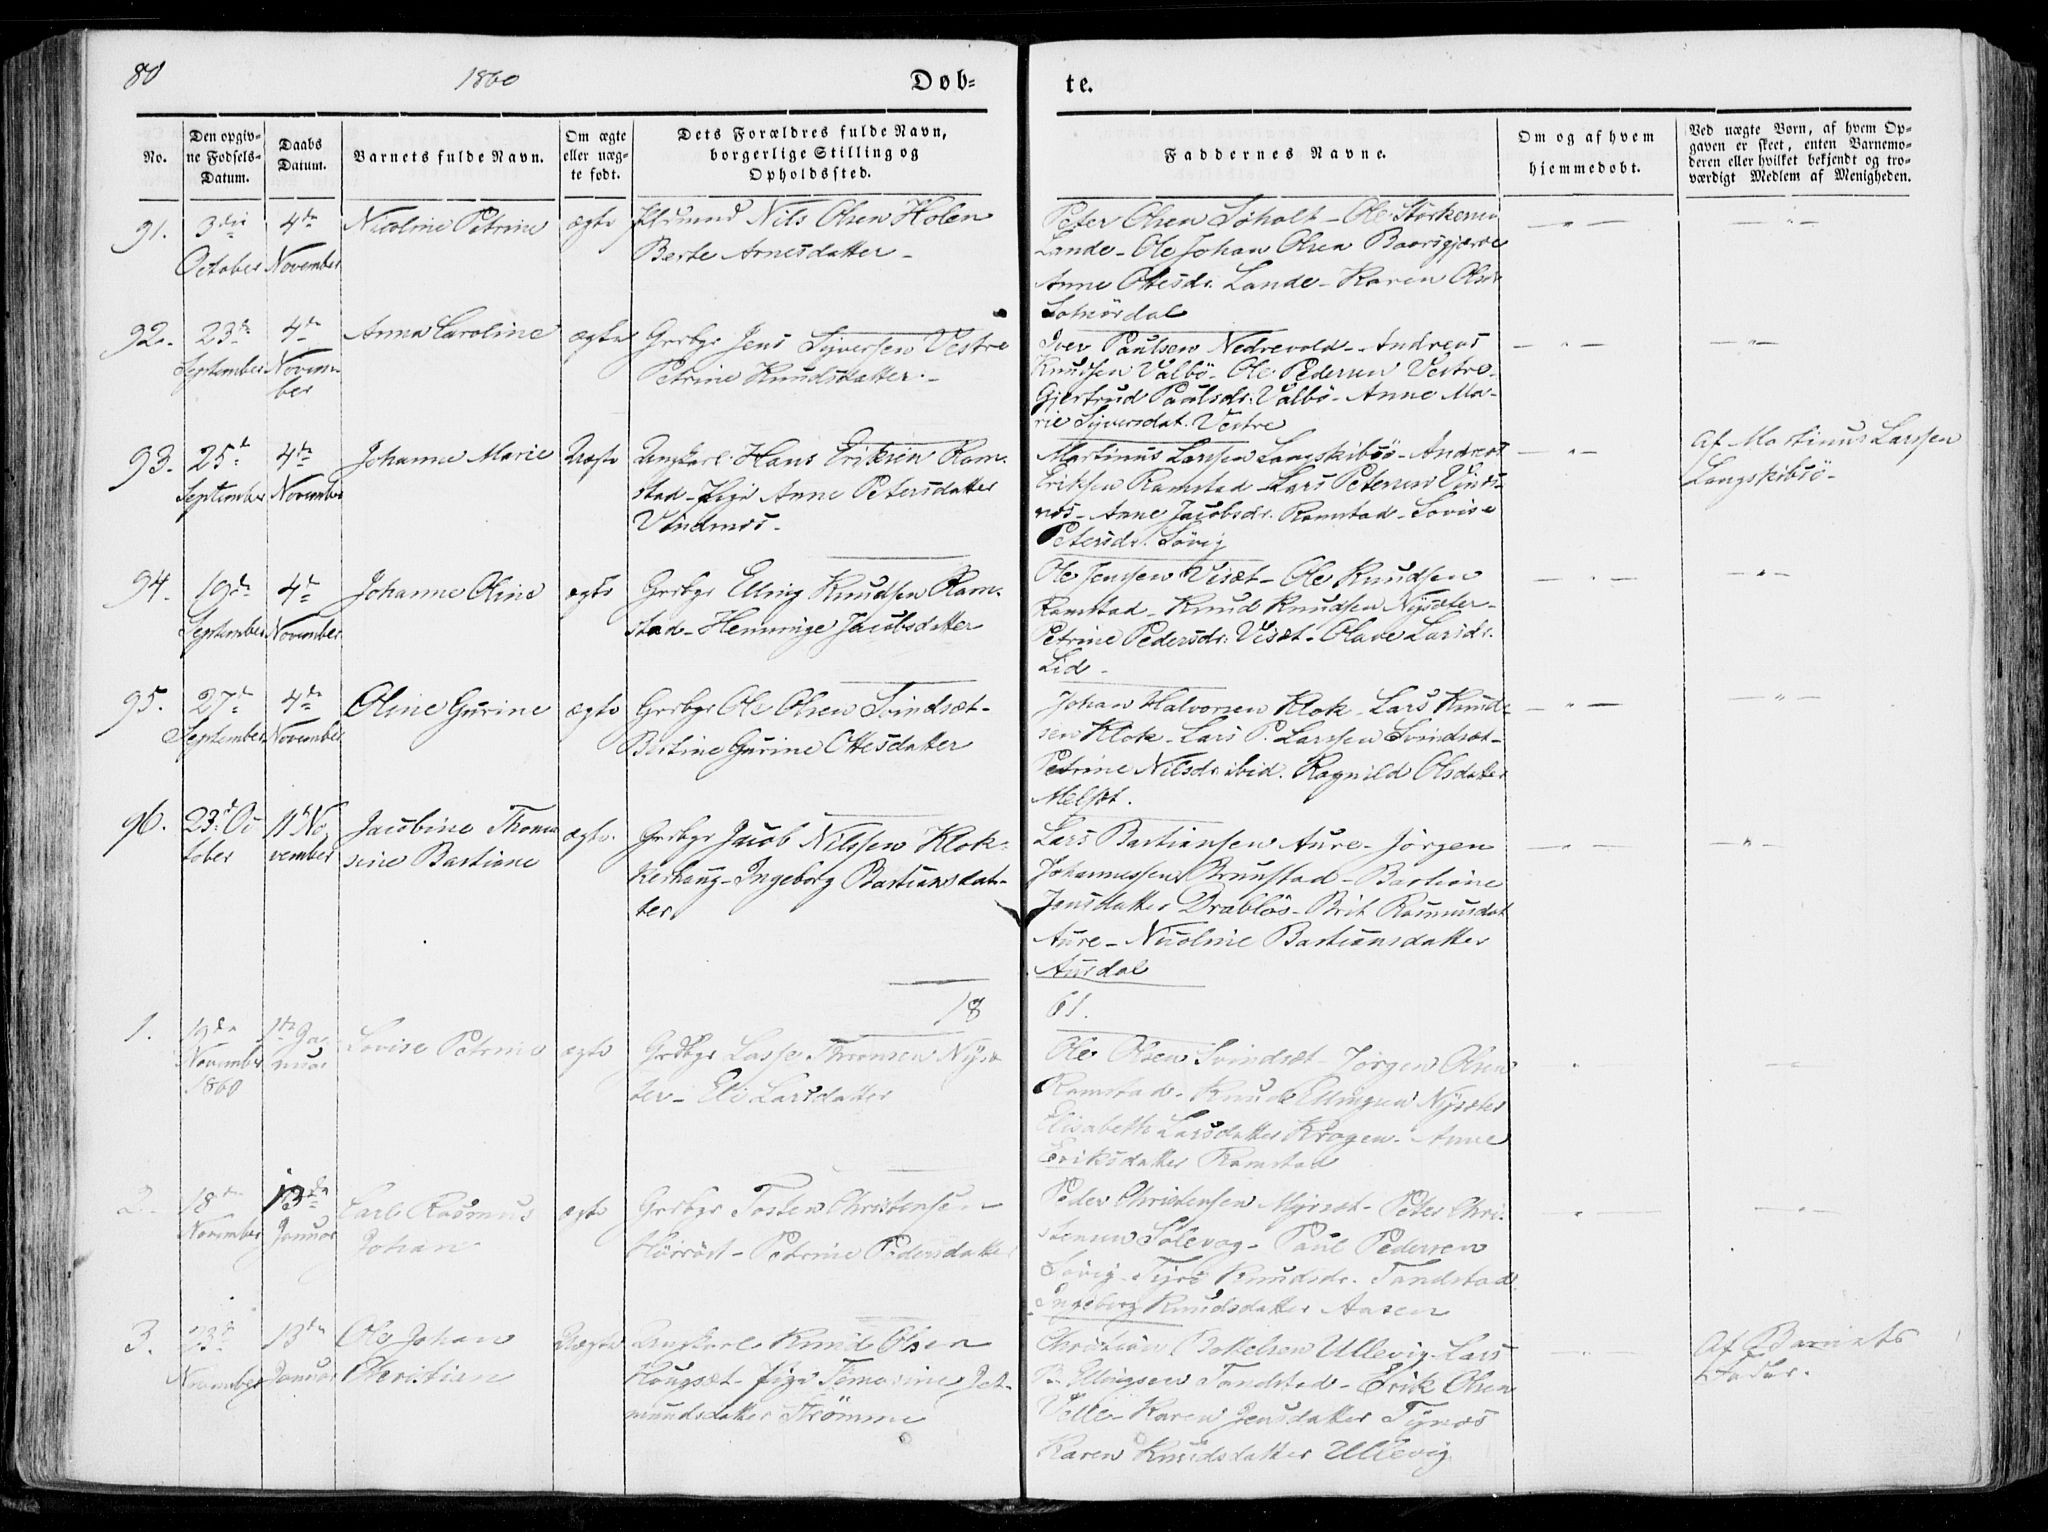 80
1860
Døb-
te.
No.
Den opgiv-
ne Fødsels-
Datum.
Daabs
Datum.
Barnets fulde Navn.
Om ægte
eller uæg-
te født.
Dets Forældres fulde Navn,
borgerlige Stilling og
Opholdssted.
Faddernes Navne.
Om og af hvem
hjemmedøbt.
Ved uægte Børn, af hvem Op-
gaven er skeet, enten Barnemo-
deren eller hvilket bekjendt og tro-
værdigt Medlem af Menigheden.
91.
October
4de
November
Nicoline Petrine
ægte
Nils Olsen Holen
Berte Arnesdatter -
Peter Olsen Søholt - Ole
Lande - Ole Johan Olsen
Anne Lande - Karen
92.
23de
September
4de
Novem-
ber
Anna Caroline
ægte
Grbgr Jens Syversen Vestre
Petrine Knudsdatter -
Iver Paulsen Nedrevold - Andreas
Knudsen Valbö - Ole Pedersen Vestre -
Gjertrud Paulsdr. Valbö - Anne Ma-
rie Syversdat. Vestre
93.
25de
September
4de
November
Johanne Marie
Uægte
Ungkarl Hans Eriksen Ram-
stad - Pige Anne Petersdatter
Vindnæs -
Martinus Larssen Langskibsö - Andreas
Eriksen Ramstad - Lars Petersen Vind-
næs - Anne Jacobsdr. Ramstad - Lovise
Petersdr. Søvig
Af Martinus Larssen
Langskibsö -
94.
19de
September
4de
November
Johanne Oline
ægte
Grbgr Elling Knudsen Ram-
stad - Hemminge Jacobsdatter
Ole Jenssen Viset - Ole Knudsen
Ramstad - Knud Knudsen Nysæter -
Petrine Pedersdr. Viset - Olave Larsdr.
Lid -
95.
27de
September
4de
November
Oline Gurine
ægte
Grbgr Ole Olsen Svindsæt -
Bertine Gurine Ottesdatter
Johan Halvorsen Klok - Lars Knud-
sen Klok - Lars P. Larssen Svindsæt -
Petrine Nilsdr. ibid. Ragnild Olsdatter
Melsæt.
96.
23de Oc
tober
11te No
vember
Jacobine Thoma
sine Bastiane
ægte
Grbgr Jacob Nilssen Klok-
kerhaug - Ingeborg Bastiansdat-
ter
Lars Bastiansen Aure - Jörgen
Johannessen Brunstad - Bastiane
Jensdatter Drabløs - Brit Rasmusdat
Aure - Nicoline Bastiansdatter
Aurdal
18
61.
1.
19de
November
1860
1ste Ja-
nuar
Lovise Petrine
ægte
Grbgr Lasse Nysæ
ter - Eli Larsdatter
Ole Olsen Svindsæt - Jörgen Olsen
Ramstad - Knud Ellingsen Nysæter
Elisabeth Larsdatter Kragen - Anne
Eriksdatter Ramstad
2.
18de
November
13de
Januar
Carl Rasmus
Johan
ægte
Grbgr Tosten Christensen
- Petrine Pedersdatter
Peder Christensen Myrsæt - Peter Chri-
stensen Solevog - Paul Pedersen
Søvig - Knudsdr. Tandstad
Ingeborg Knudsdatter Aasen
3.
23de
November
13de
Januar
Ole Johan
Christian
Uægte
Ungkarl Knud Olsen
Haugsæt - Pige Tomasine Jet-
mundsdatter Strömme
Christian Ullevig - Lars
P. Ellingsen Tandstad - Erik Olsen
Velle - Karen Jensdatter Tynæs
Karen Knudsdatter Ullevig
Af Barnets
Fader.